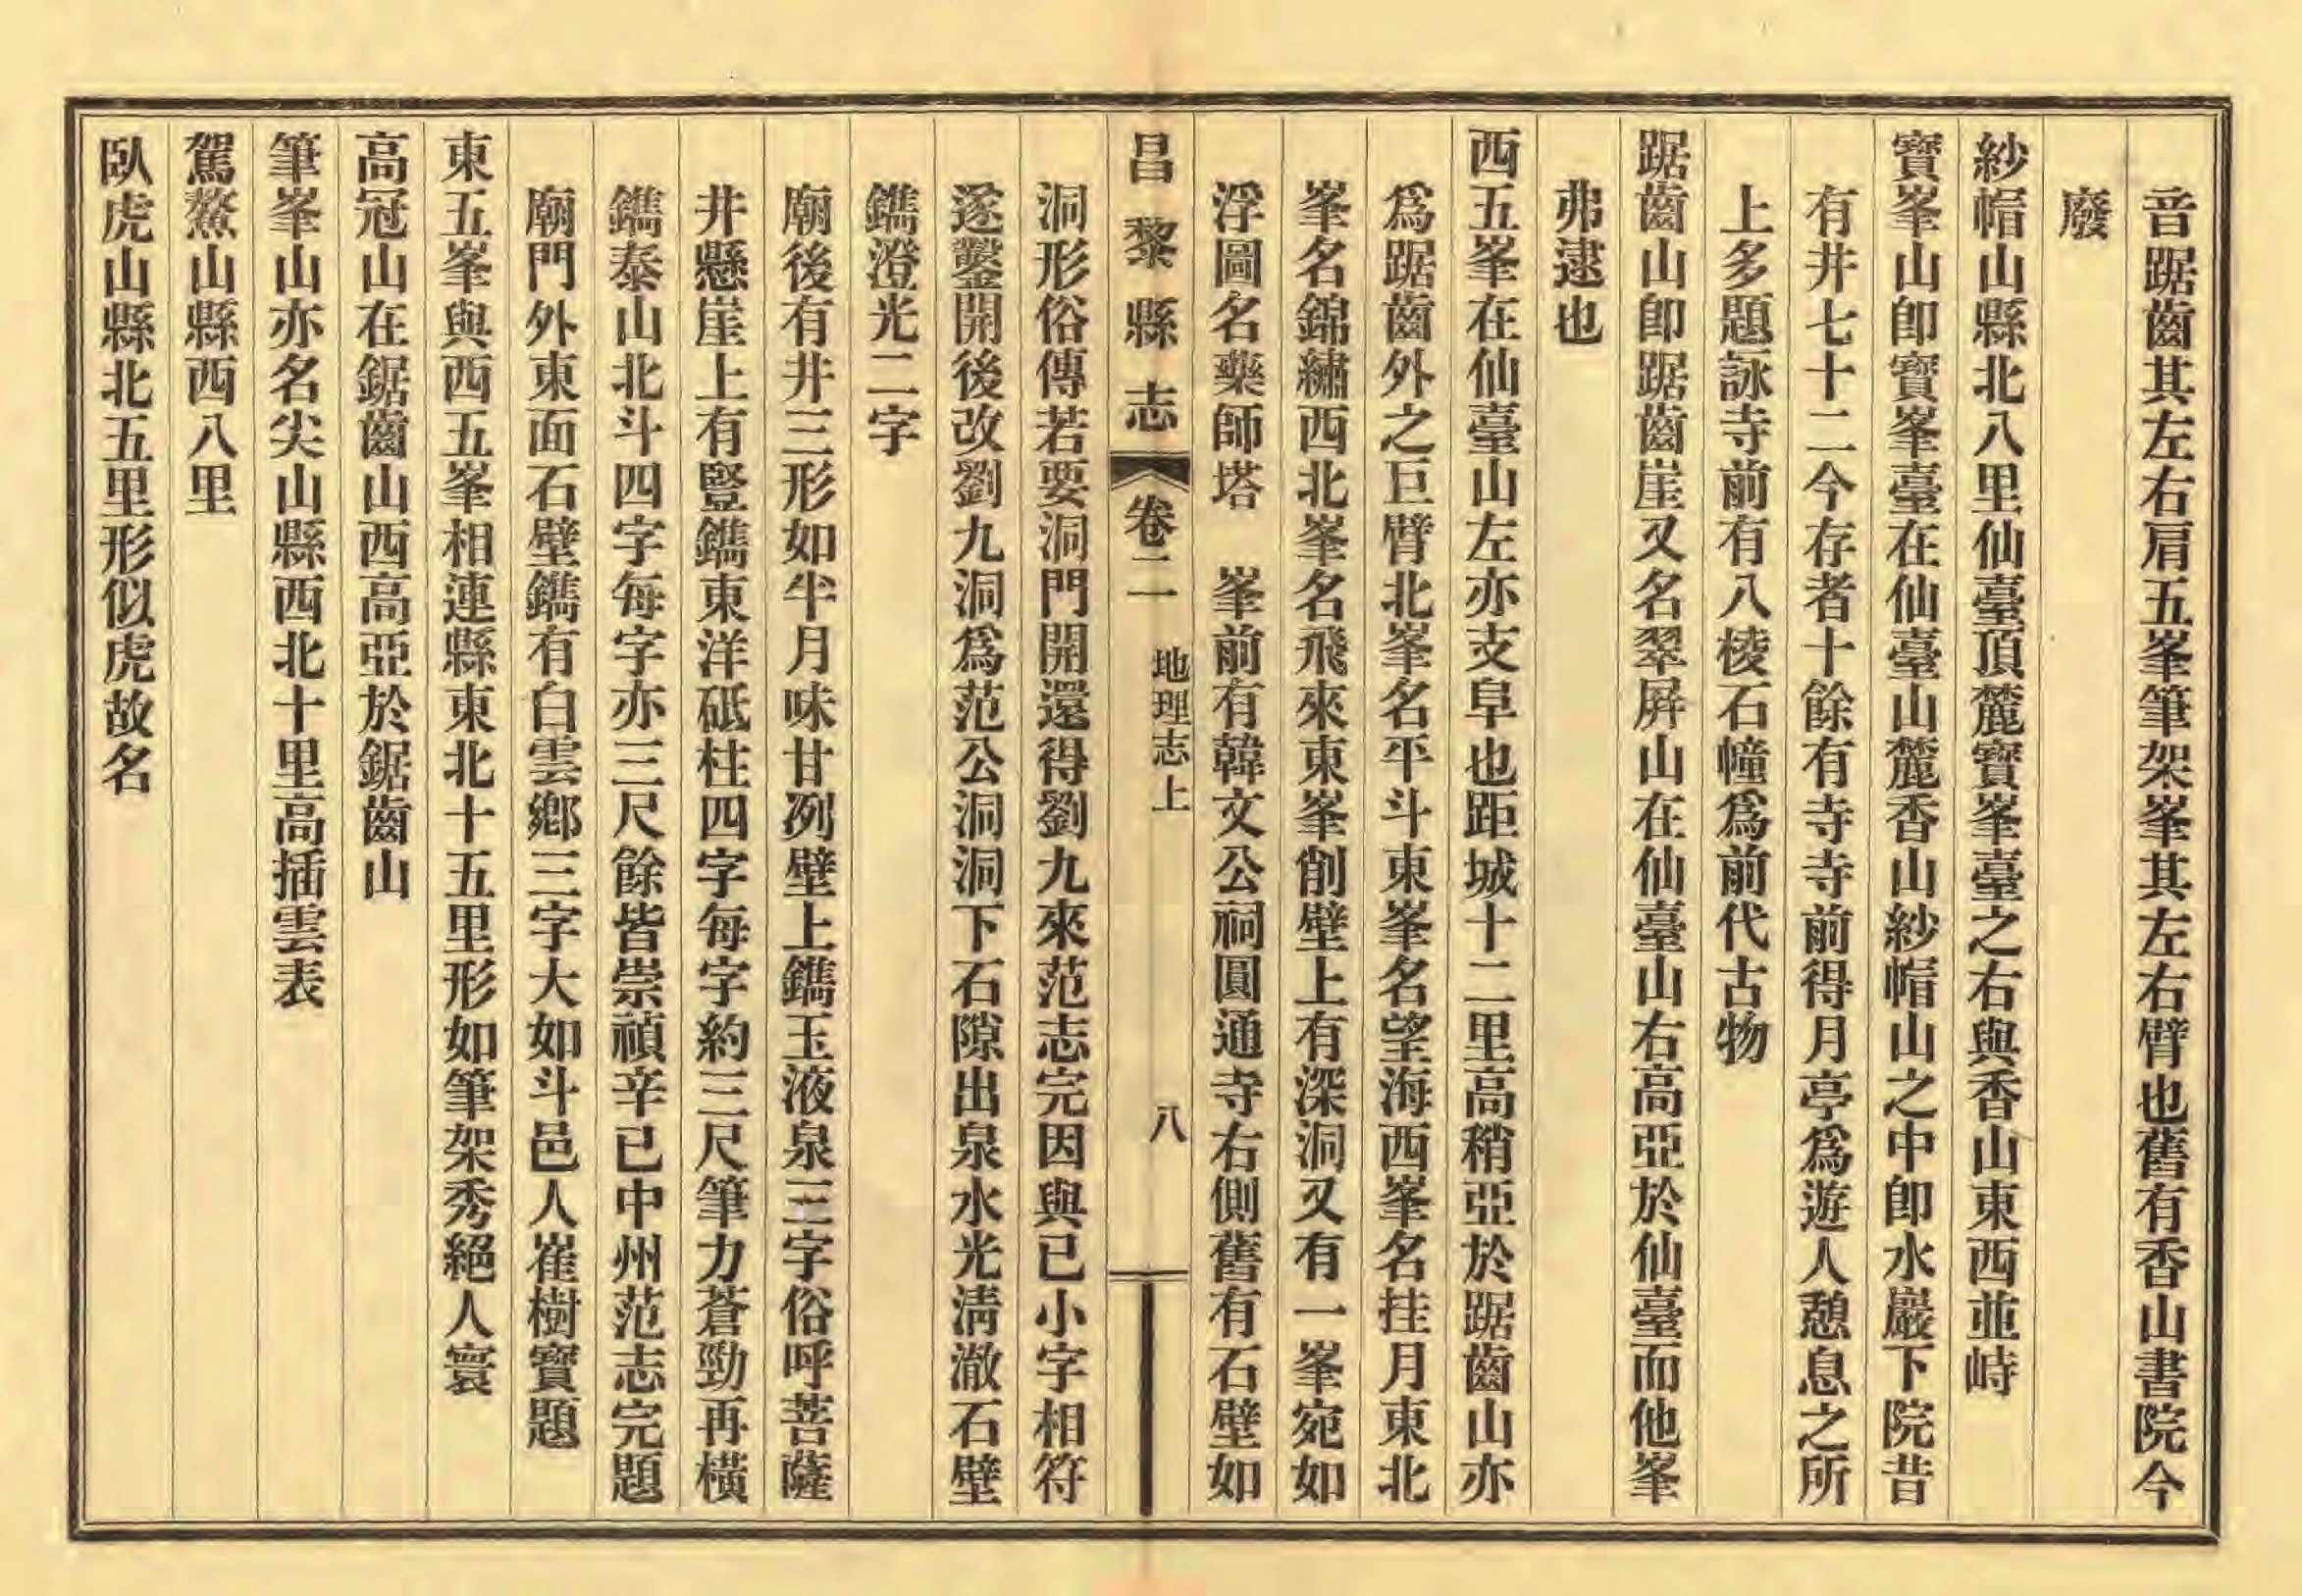 音踞齒其左右肩五峯筆架峯其左右臂也舊有香山書院今
廢
紗帽山縣北八里仙臺頂麓寶峯臺之右與香山東西並峙
寶峯山卽寶峯臺在仙臺山麓香山紗帽山之中卽水巖下院昔
有井七十二今存者十餘有寺寺前得月亭爲遊人憩息之所
上多題詠寺前有八棱石幢爲前代古物
踞齒山卽踞齒崖又名翠屛山在仙臺山右高亞於仙臺而他峯
弗逮也
西五峯在仙臺山左亦支阜也距城十二里高稍亞於踞齒山亦
爲踞齒外之巨臂北峯名平斗東峯名望海西峯名挂月東北
峯名錦繡西北峯名飛來東峯削壁上有深洞又有一峯宛如
浮圖名藥師塔　峯前有韓文公祠圓通寺右側舊有石壁如
昌黎縣志　卷二　地理志上　八
洞形俗傳若要洞門開還得劉九來范志完因與已小字相符
遂鑿開後改劉九洞爲范公洞洞下石隙出泉水光淸澈石壁
鐫澄光二字
廟後有井三形如半月味甘冽壁上鐫玉液泉三字俗呼菩薩
井懸崖上有豎鐫東洋砥柱四字每字約三尺筆力蒼勁再橫
鐫泰山北斗四字每字亦三尺餘皆崇禎辛已中州范志完題
廟門外東面石壁鐫有白雲鄕三字大如斗邑人崔樹寶題
東五峯與西五峯相連縣東北十五里形如筆架秀絕人寰
高冠山在鋸齒山西高亞於鋸齒山
筆峯山亦名尖山縣西北十里高插雲表
駕鰲山縣西八里
臥虎山縣北五里形似虎故名